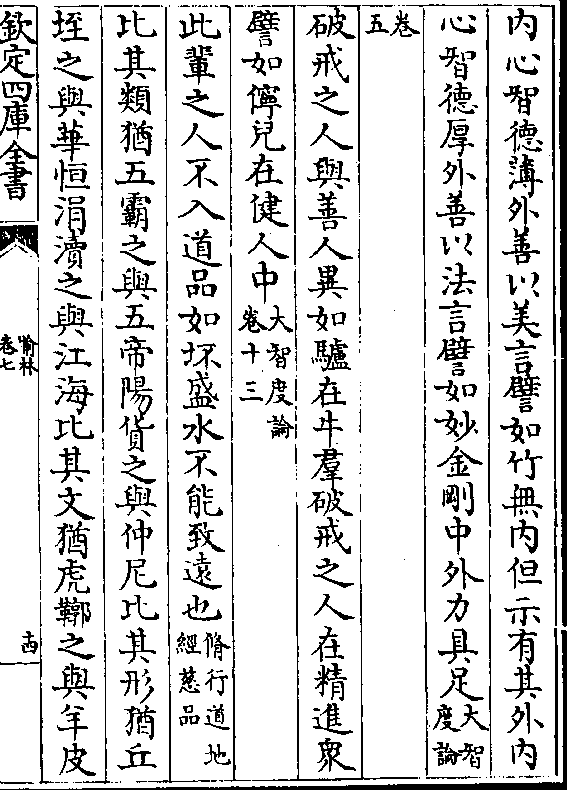 内心智德薄外善以美言譬如竹無内但示有其外内
心智德厚外善以法言譬如妙金剛中外力具足大智度論
卷五
破戒之人與善人異如驢在牛羣破戒之人在精進衆
譬如儜兒在健人中大智度論卷十三
此輩之人不入道品如坏盛水不能致遠也脩行道地經慈品
比其類猶五霸之與五帝陽貨之與仲尼比其形猶丘
垤之與華恒涓瀆之與江海比其文猶虎鞹之與羊皮
欽定四庫全書
喻林
卷七
十四